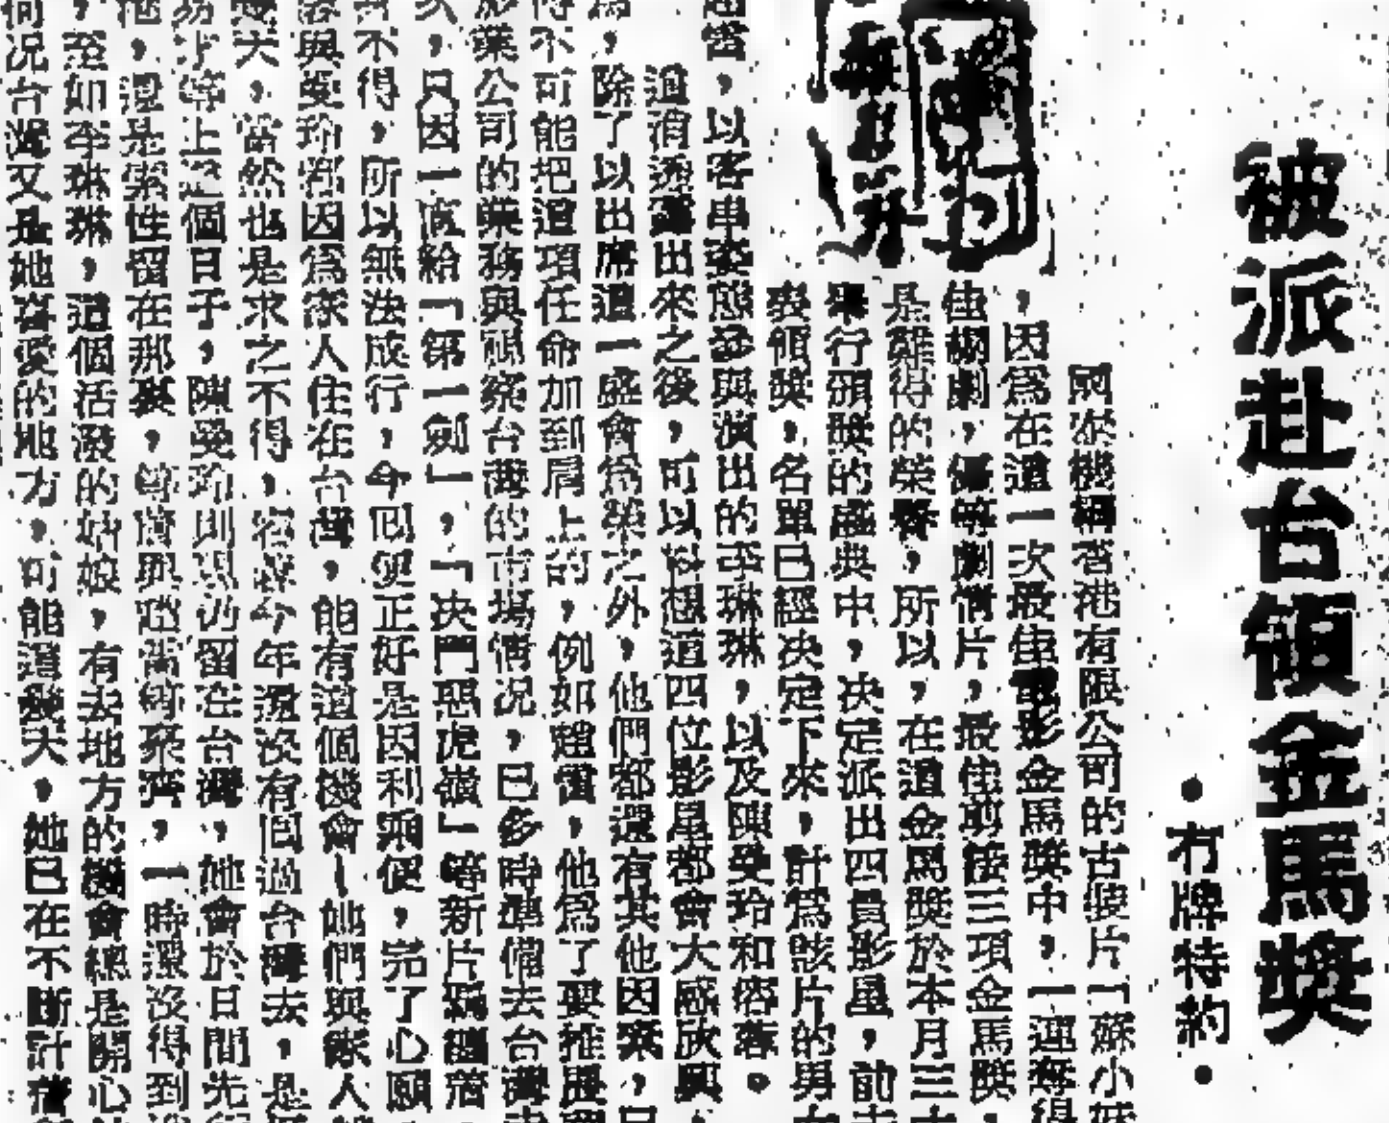 被派赴台領金馬獎
•冇牌特約•
國泰機構香港有限公司的古裝片「蘇小妹
，因爲在這一次最佳電影金馬獎中，一連奪得
佳編劇，優等劇情片，最佳剪接三項金馬獎，
是難得的榮譽，所以，在這金馬獎於本月三十
舉行頒獎的盛典中，决定派出四員影星，前去
表領獎，名單已經决定下來，計爲該片的男女
趙雷，以客串姿態參與演出的李琳琳，以及陳曼玲和容蓉。
這消透露出來之後，可以料想這四位影星都會大感欣興，
爲，除了以出席這一盛會爲榮之外，他們都還有其他因素，只
得不可能把這項任命加到肩上的，例如趙雷，他爲了要推展
影業公司的業務與視察台灣的市場情况，已多時準備去台灣
次，只因一直給「第一劍」，「决鬥惡虎嶺」等新片羈
不得，所以無法成行，今回便正好是因利乘便，完了心願，
容與曼玲都因爲家人住在台灣，能有這個機會－她們與家人
幾天，當然也是求之不得，容蓉今年還沒有回過台灣去，是
易才等上這個日子，陳曼玲則仍留在台灣，她會於日間先
他，還是索性留在那裏，等着與趙雷容蓉齊，一時還沒得到
，至如李琳琳，這個活潑的姑娘，有去地方的機會總是開心
何况台灣又是她喜愛的地方，可能這幾天，她已在不斷計